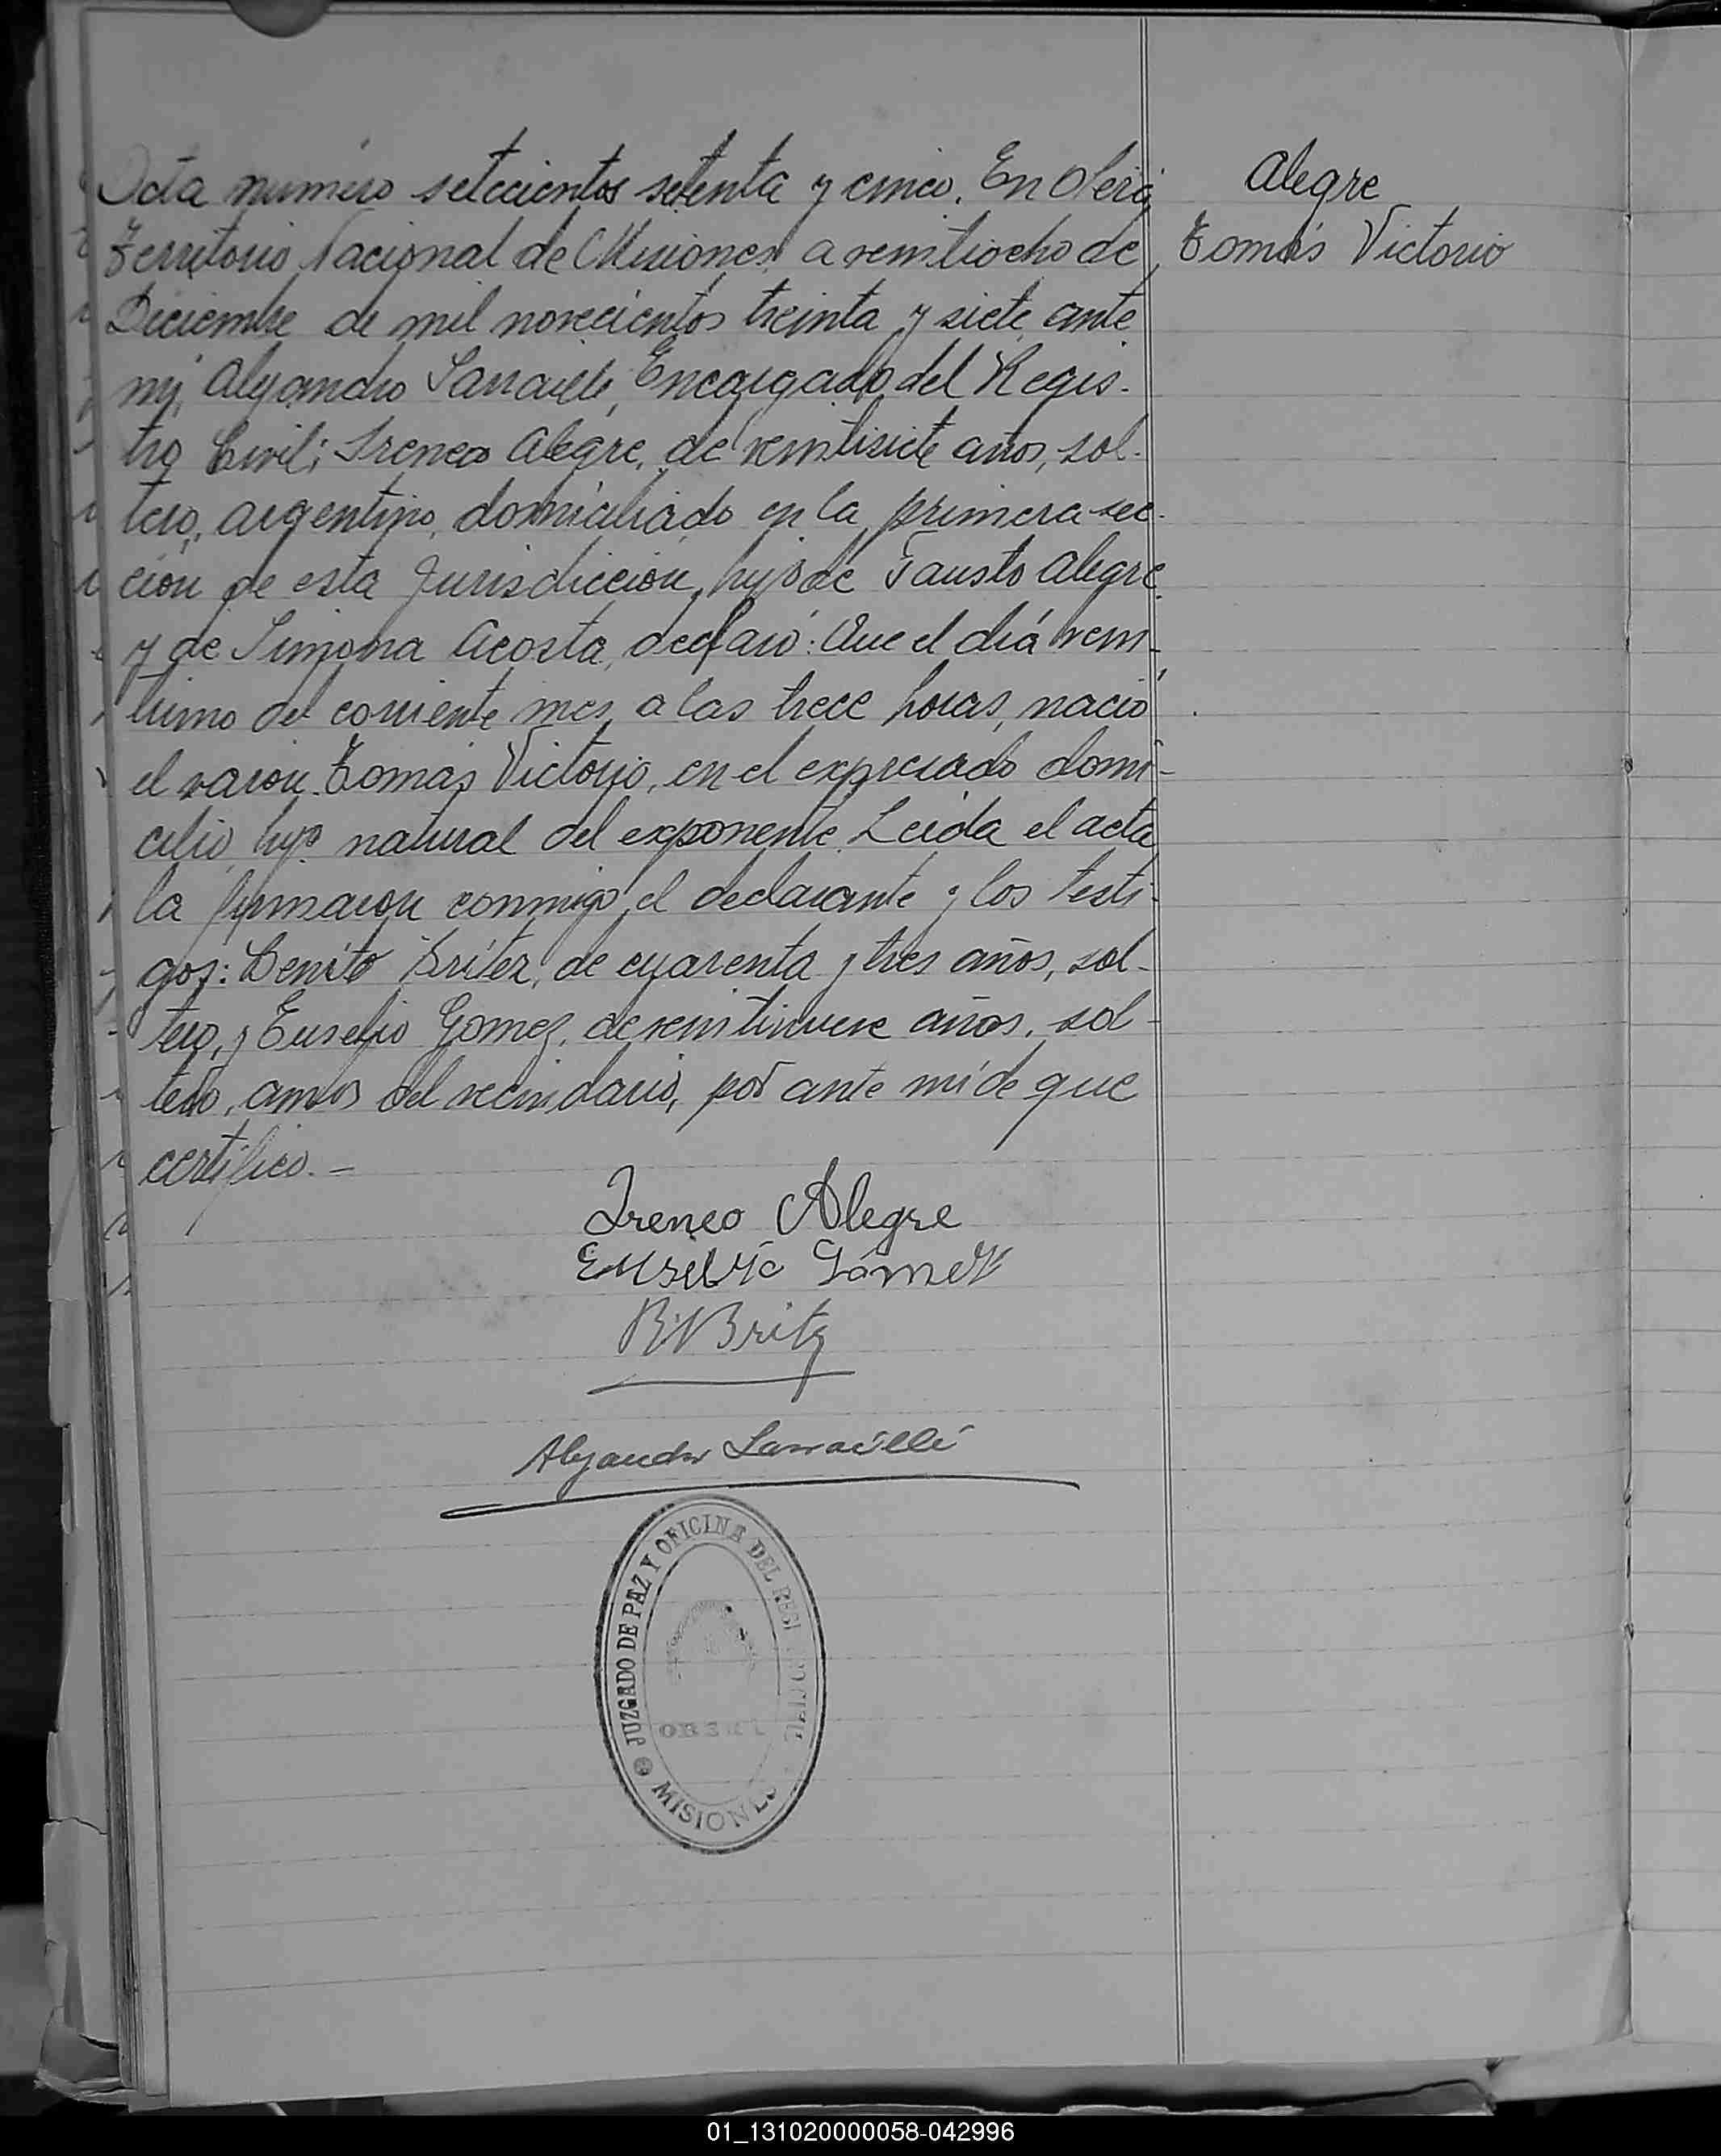 Acta numero setecientos setenta y cinco. En Oberá
Alegre
Territorio Nacional de Misiones a veintiocho de
Tomás Victorio
Diciembre de mil novecientos treinta y siete, ante
mi, Alejandro Sarraillé, Encargado del Regis-
tro Civil; Ireneo Alegre, de veintisiete años, sol-
tero, argentino, domiciliado en la primera sec-
ción de esta Jurisdicción, hijo de Fausto Alegre
y de Simona Acosta, declaró: Que el diá vein-
tiuno del corriente mes, a las trece horas, nació
el varón Tomás Victorio, en el expresado domi-
cilio, hijo natural del exponente. Leída el acta
la firmaron conmigo, el declarante y los testi-
gos: Benito Britez, de cuarenta y tres años, sol-
tero, y Eusebio Gomez, de veintinueve años, sol-
tero, amos del vecindario, por ante mí de que
certifico.-
Ireneo Alegre
Eusebio Gómez
Britz
Alejandro Sarraillé
JUZGADO DE PAZ Y OFICINA DEL
MISIONES
01_131020000058-042996